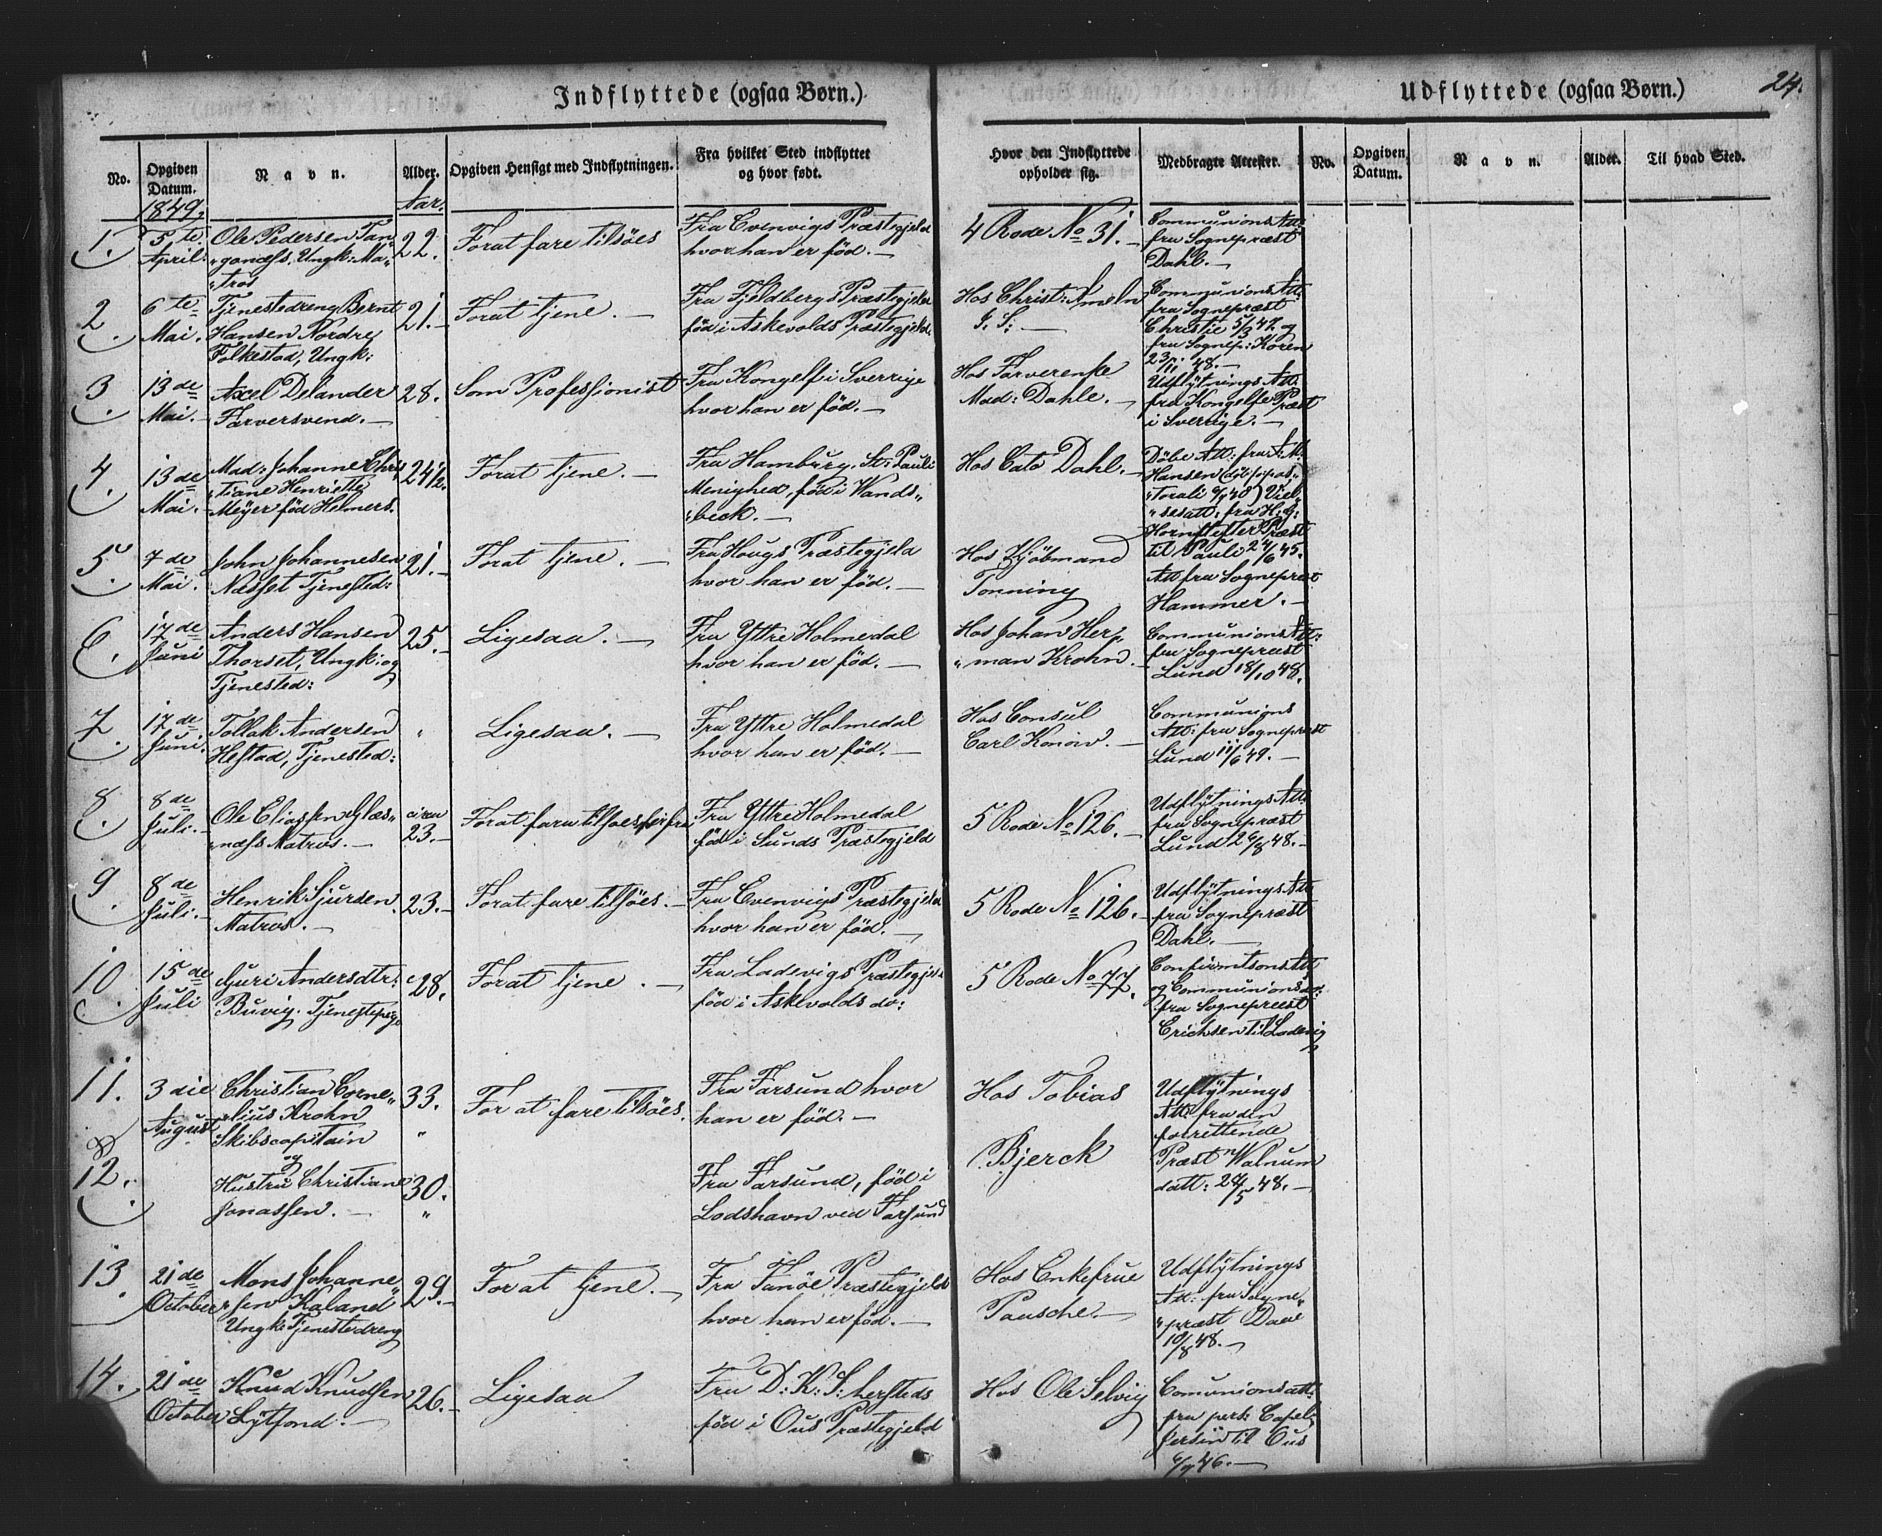 Indflyttede (ogsaa Børn.)
Udflyttede (ogsaa Børn.)
24.
No.
Opgiven Datum.
Navn.
Alder.
Opgiven Hensigt med Indflytningen.
Fra hvilket Sted indflyttet
og hvor født.
Hvor den Indflyttede
opholder sig.
Medbragte Attester.
No.
Opgiven Datum.
Navn.
Alder.
Til hvad Sted.
1849.
Aar.
1.
5te
April.
Ole Pedersen Tan„
„gonæss, Ungk: Ma„
„tros
22.
Forat fare tilsöes
Fra Evenvigs Præstegjeld
hvor han er föd. —
4 Rode No 31. —
Communions Att:
fra Sognepræst
Dahl. —
2
6te
Mai.
Tjenestedreng Bernt
Hansen Nordre
Folkestad, Ungk:
21. —
Forat tjene. —
Fra Fjeldbergs Præstegjeld
föd i Askevolds Præstegjeld.
Hos Christ: Ameln
J. S: —
Communions Att:
fra Sognepræst
Christie 5/3 47 og
fra Sognep: Koren
23/11 48. —
3
13de
Mai. —
Axel Delander
Farversvend. —
28.
Som Professionist
Fra Kongelf i Sverrige
hvor han er föd. —
Hos Farverenke
Mad: Dahle. —
Udflytnings Att:
fra Kongelfs Præst
i Sverrige. —
4.
13de
Mai. —
Mad: Johanne Chris
„tiane Henriette
Meyer föd Helmers.
24½.
Forat tjene. —
Fra Hamburg. St: Pauli
Menighed, föd i Wands„
„beck. —
Hos Cato Dahl. —
Döbe Att: fra A: M:
Hansen
„torali
„sesatt: fra H. G:
Præst
til Pauli 24/6 45.
5.
7de
Mai.
John Johannesen
Nedset Tjenested:
21. —
Forat tjene. —
Fra Hougs Præstegjeld
hvor han er föd. —
Hos Kjöbmand
Tonning
Att fra Sognepræst
Hammer. —
6.
17de
Juni
Anders Hansen
Thorset, Ungk: og
Tjenested:
25. —
Ligesaa. —
Fra Yttre Holmedal
hvor han er föd. —
Hos Johan Her„
„man Krohn. —
Communions Att:
fra Sognepræst
Lund 18/10 48.
7.
17de
Juni.
Tollak Andersen
Hestad, Tjenested:
„
Ligesaa. —
Fra Yttre Holmedal
hvor han er föd. —
Hos Consul
Carl Konow. —
Communions
Att: fra Sognepræst
Lund 11/6 49. —
8.
8de
Juli. —
Ole Eliassen Glæs„
„næss Matros. —
circa
23. —
Forat fare tilsoes
Fra Yttre Holmedal
föd i Sunds Præstegjeld
5 Rode No 126. —
Udflytnings Att:
fra Sognepræst
Lund 26/8 48. —
9.
8de
Juli. —
Henrik Sjursen
Matros. —
23. —
Forat fare tilsöes. —
Fra Evenvigs Præstegjeld
hvor han er föd. —
5 Rode No 126. —
Udflytnings Att
fra Sognepræst
Dahl. —
10.
15de
Juli
Guri Andersdtr:
Buvig. Tjenestepige
28.
Forat tjene. —
Fra Ladevigs Præstegjeld
föd i Askvolds do:
5 Rode No 77.
Confirmtsons Att
og Communions do:
fra Sognepræst
Erichsen til Ladevig
11.
3die
August
Christian Corne„
„lius Krohn
Skibscapitain
og
33.
„
For at fare tilsöes.
Fra Farsund hvor
han er föd. —
Hos Tobias
Bjerck
Udflytnings
Att: fra den
forrettende
Præst Walnum
datt: 24/5 48. —
12.
Hustru Christiane
Jonassen. —
30.
„
Fra Farsund, föd i
Lodshavn ved Farsund
13.
21de
October
Mons Johanne„
„sen Kaland
Ungk: Tjenestedreng
29. —
For at tjene. —
Fra Fanöe Præstegjeld
hvor han er föd. —
Hos Enkefrue
Pausche. —
Udflytnings
Att: fra Sogne„
„præst Daae
10/8 48. —
14.
21de
October
Knud Knudsen
Lytfond. —
26. —
Ligesaa
Fra D: K: S:
föd i Ous Præstegjeld
Hos Ole Selvig
Comunionsatt:
fra pers: Capel:
til Ous
6/9 46. —